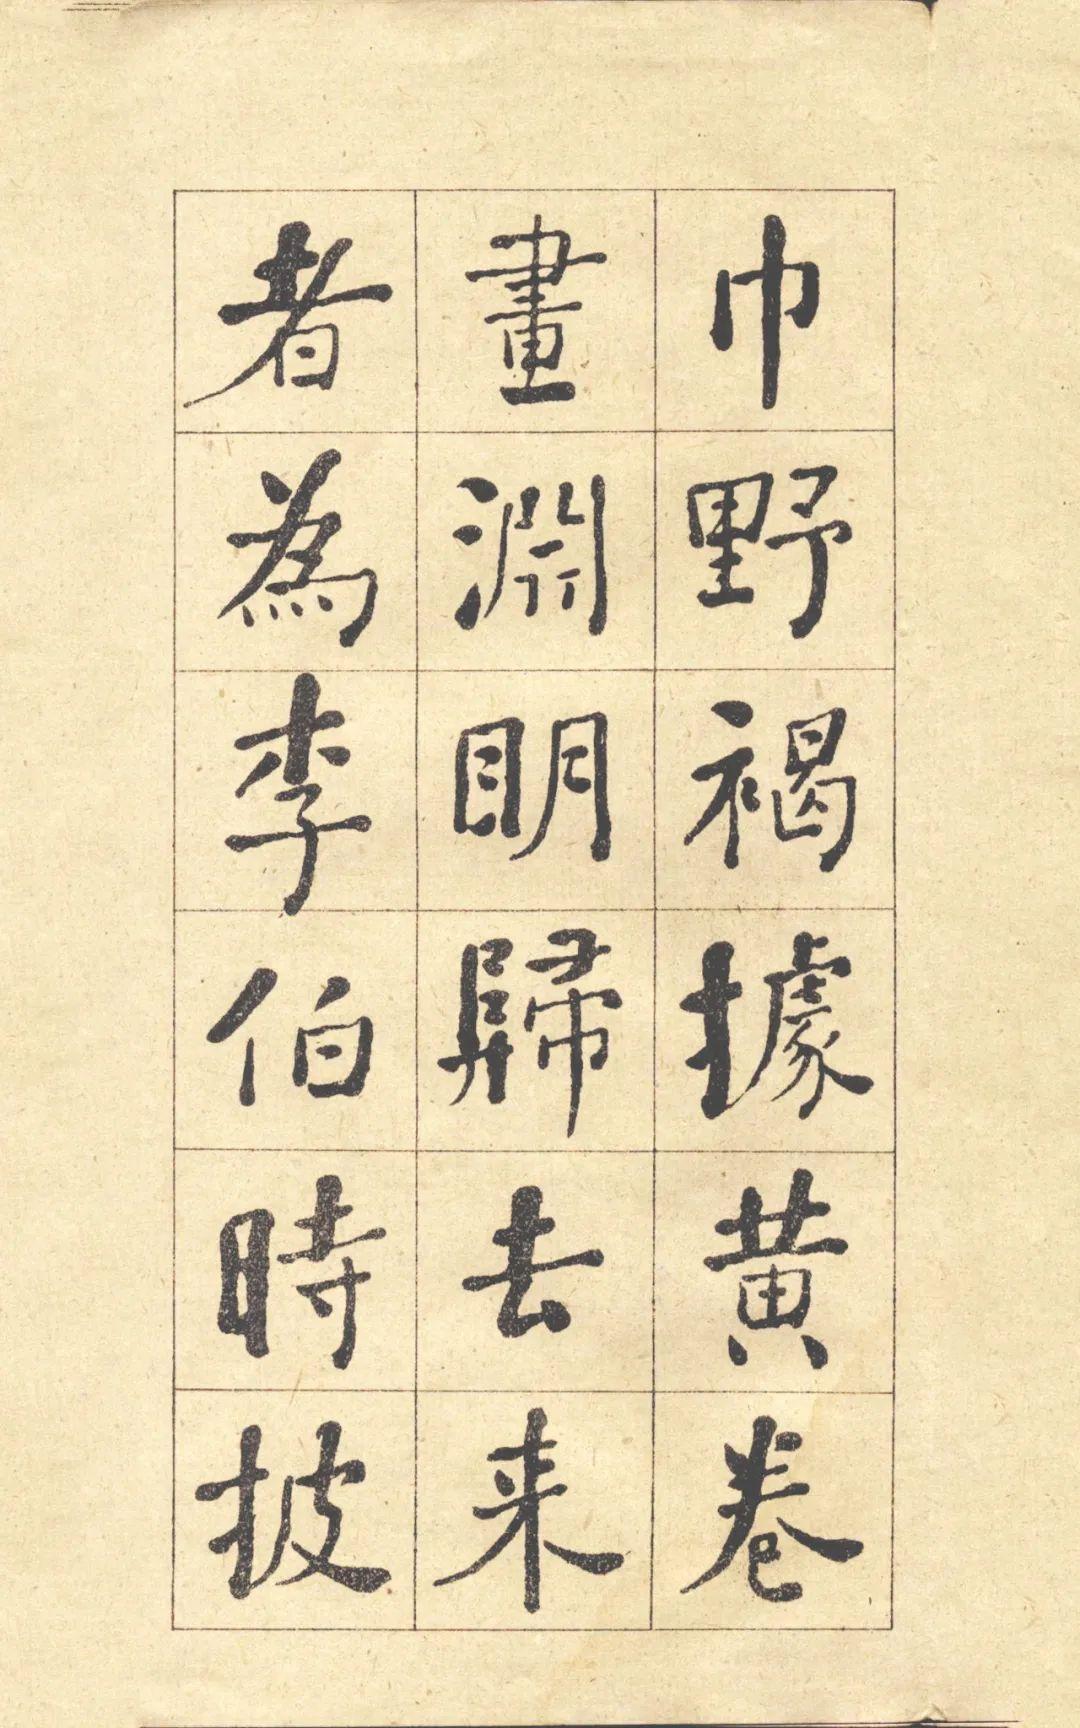 巾野褐據黄卷
畫淵眀歸去来
者為李伯時披